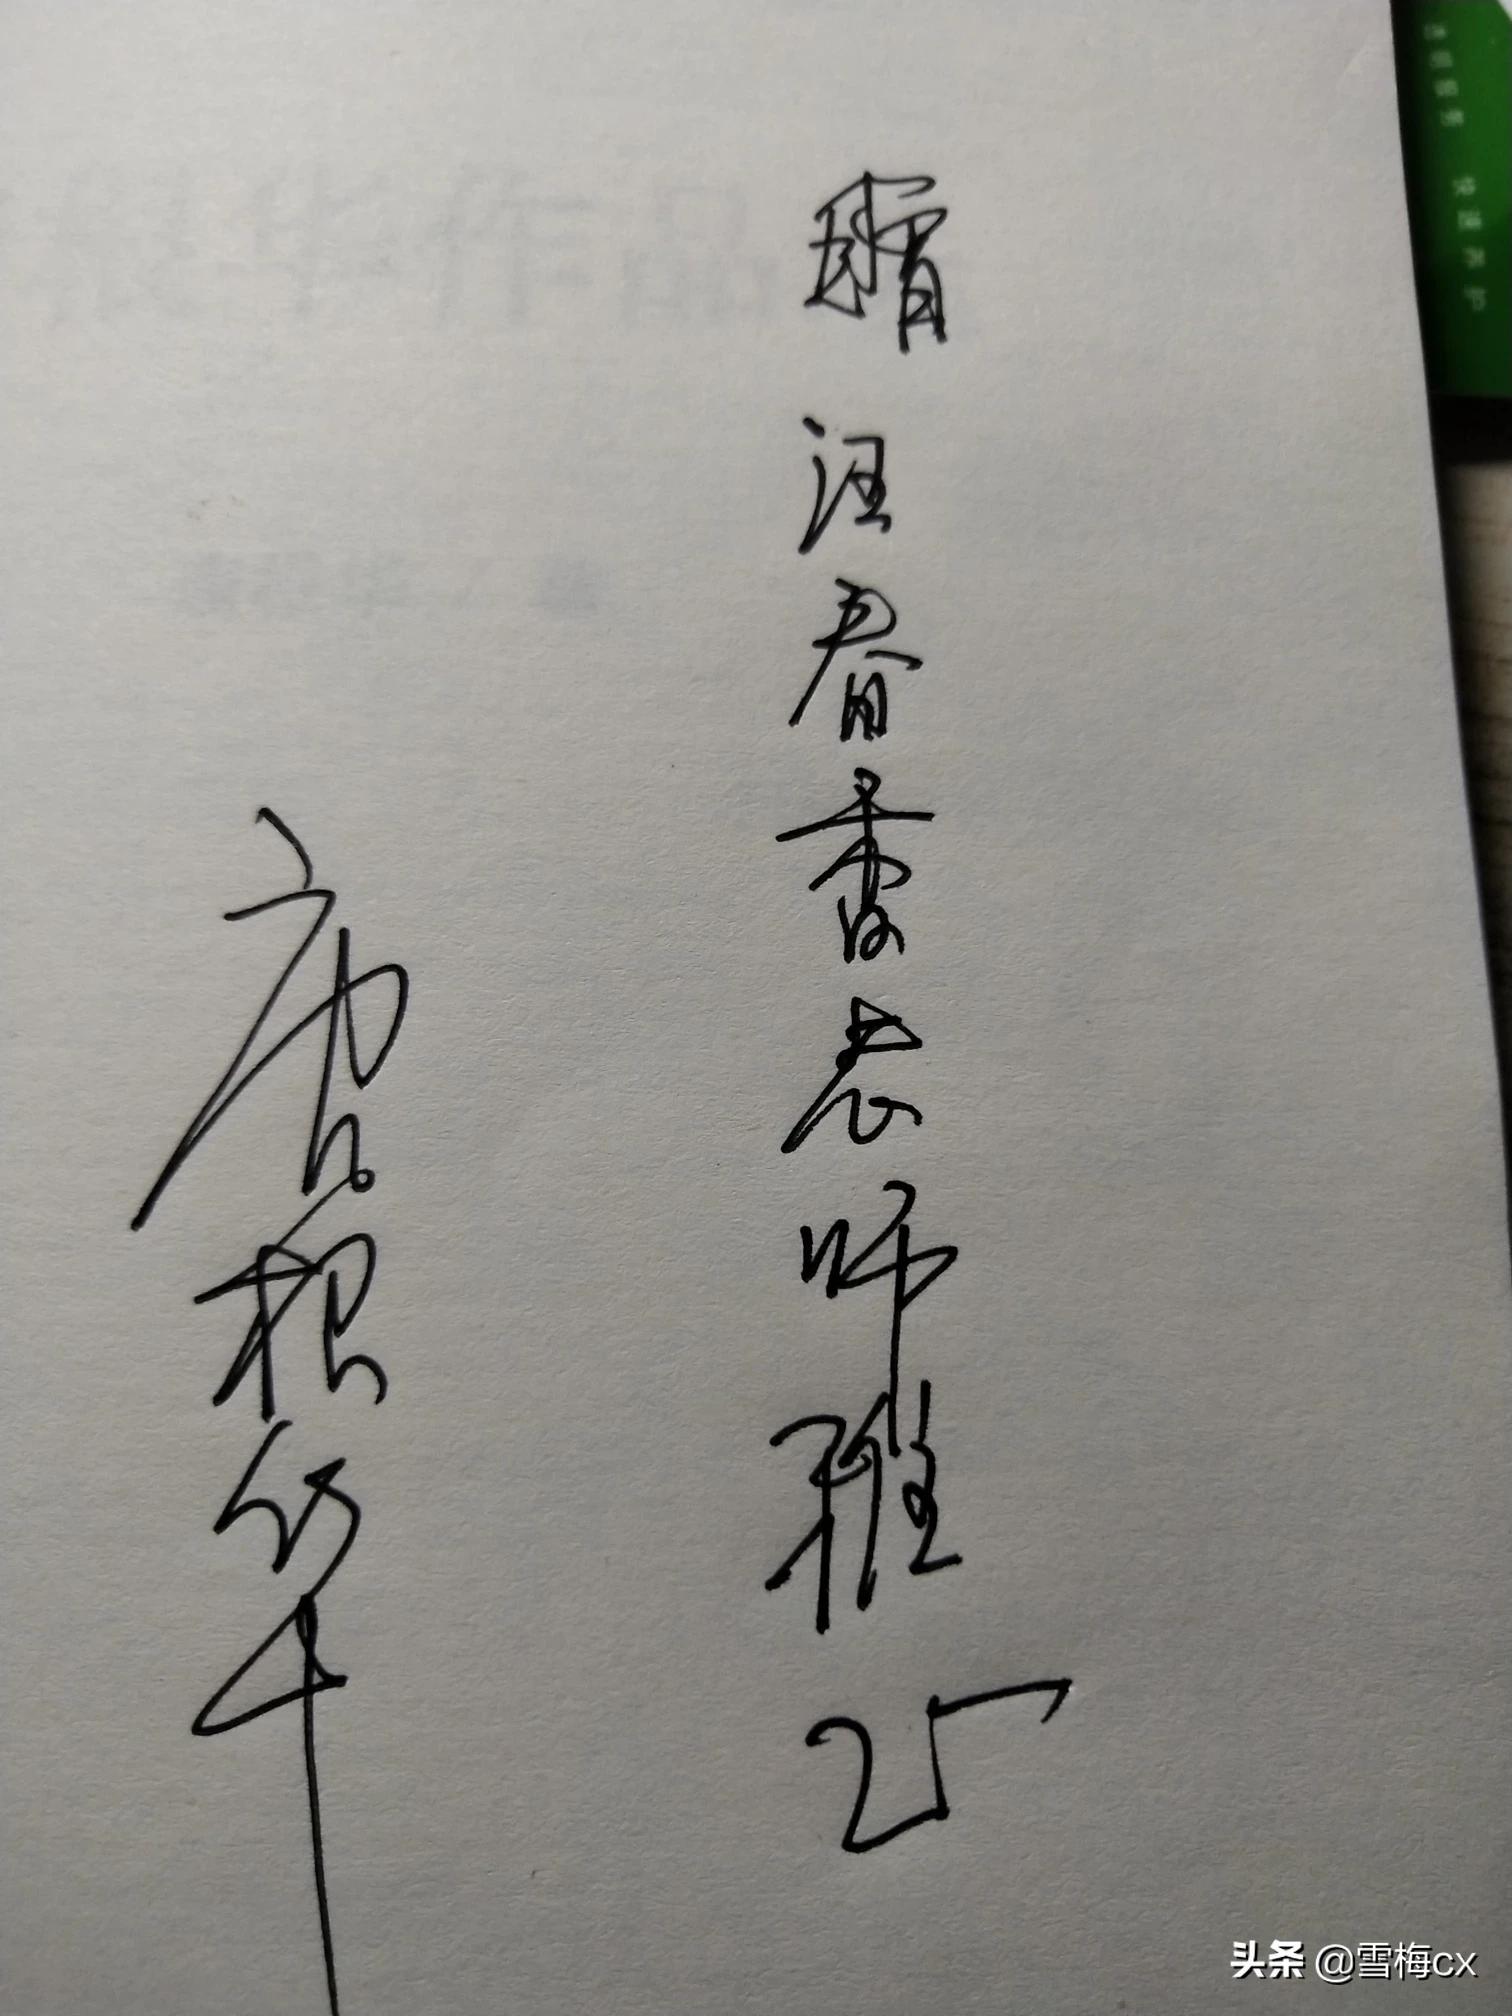 赠
汪春香老师雅正
唐根华
头条 @雪梅cx